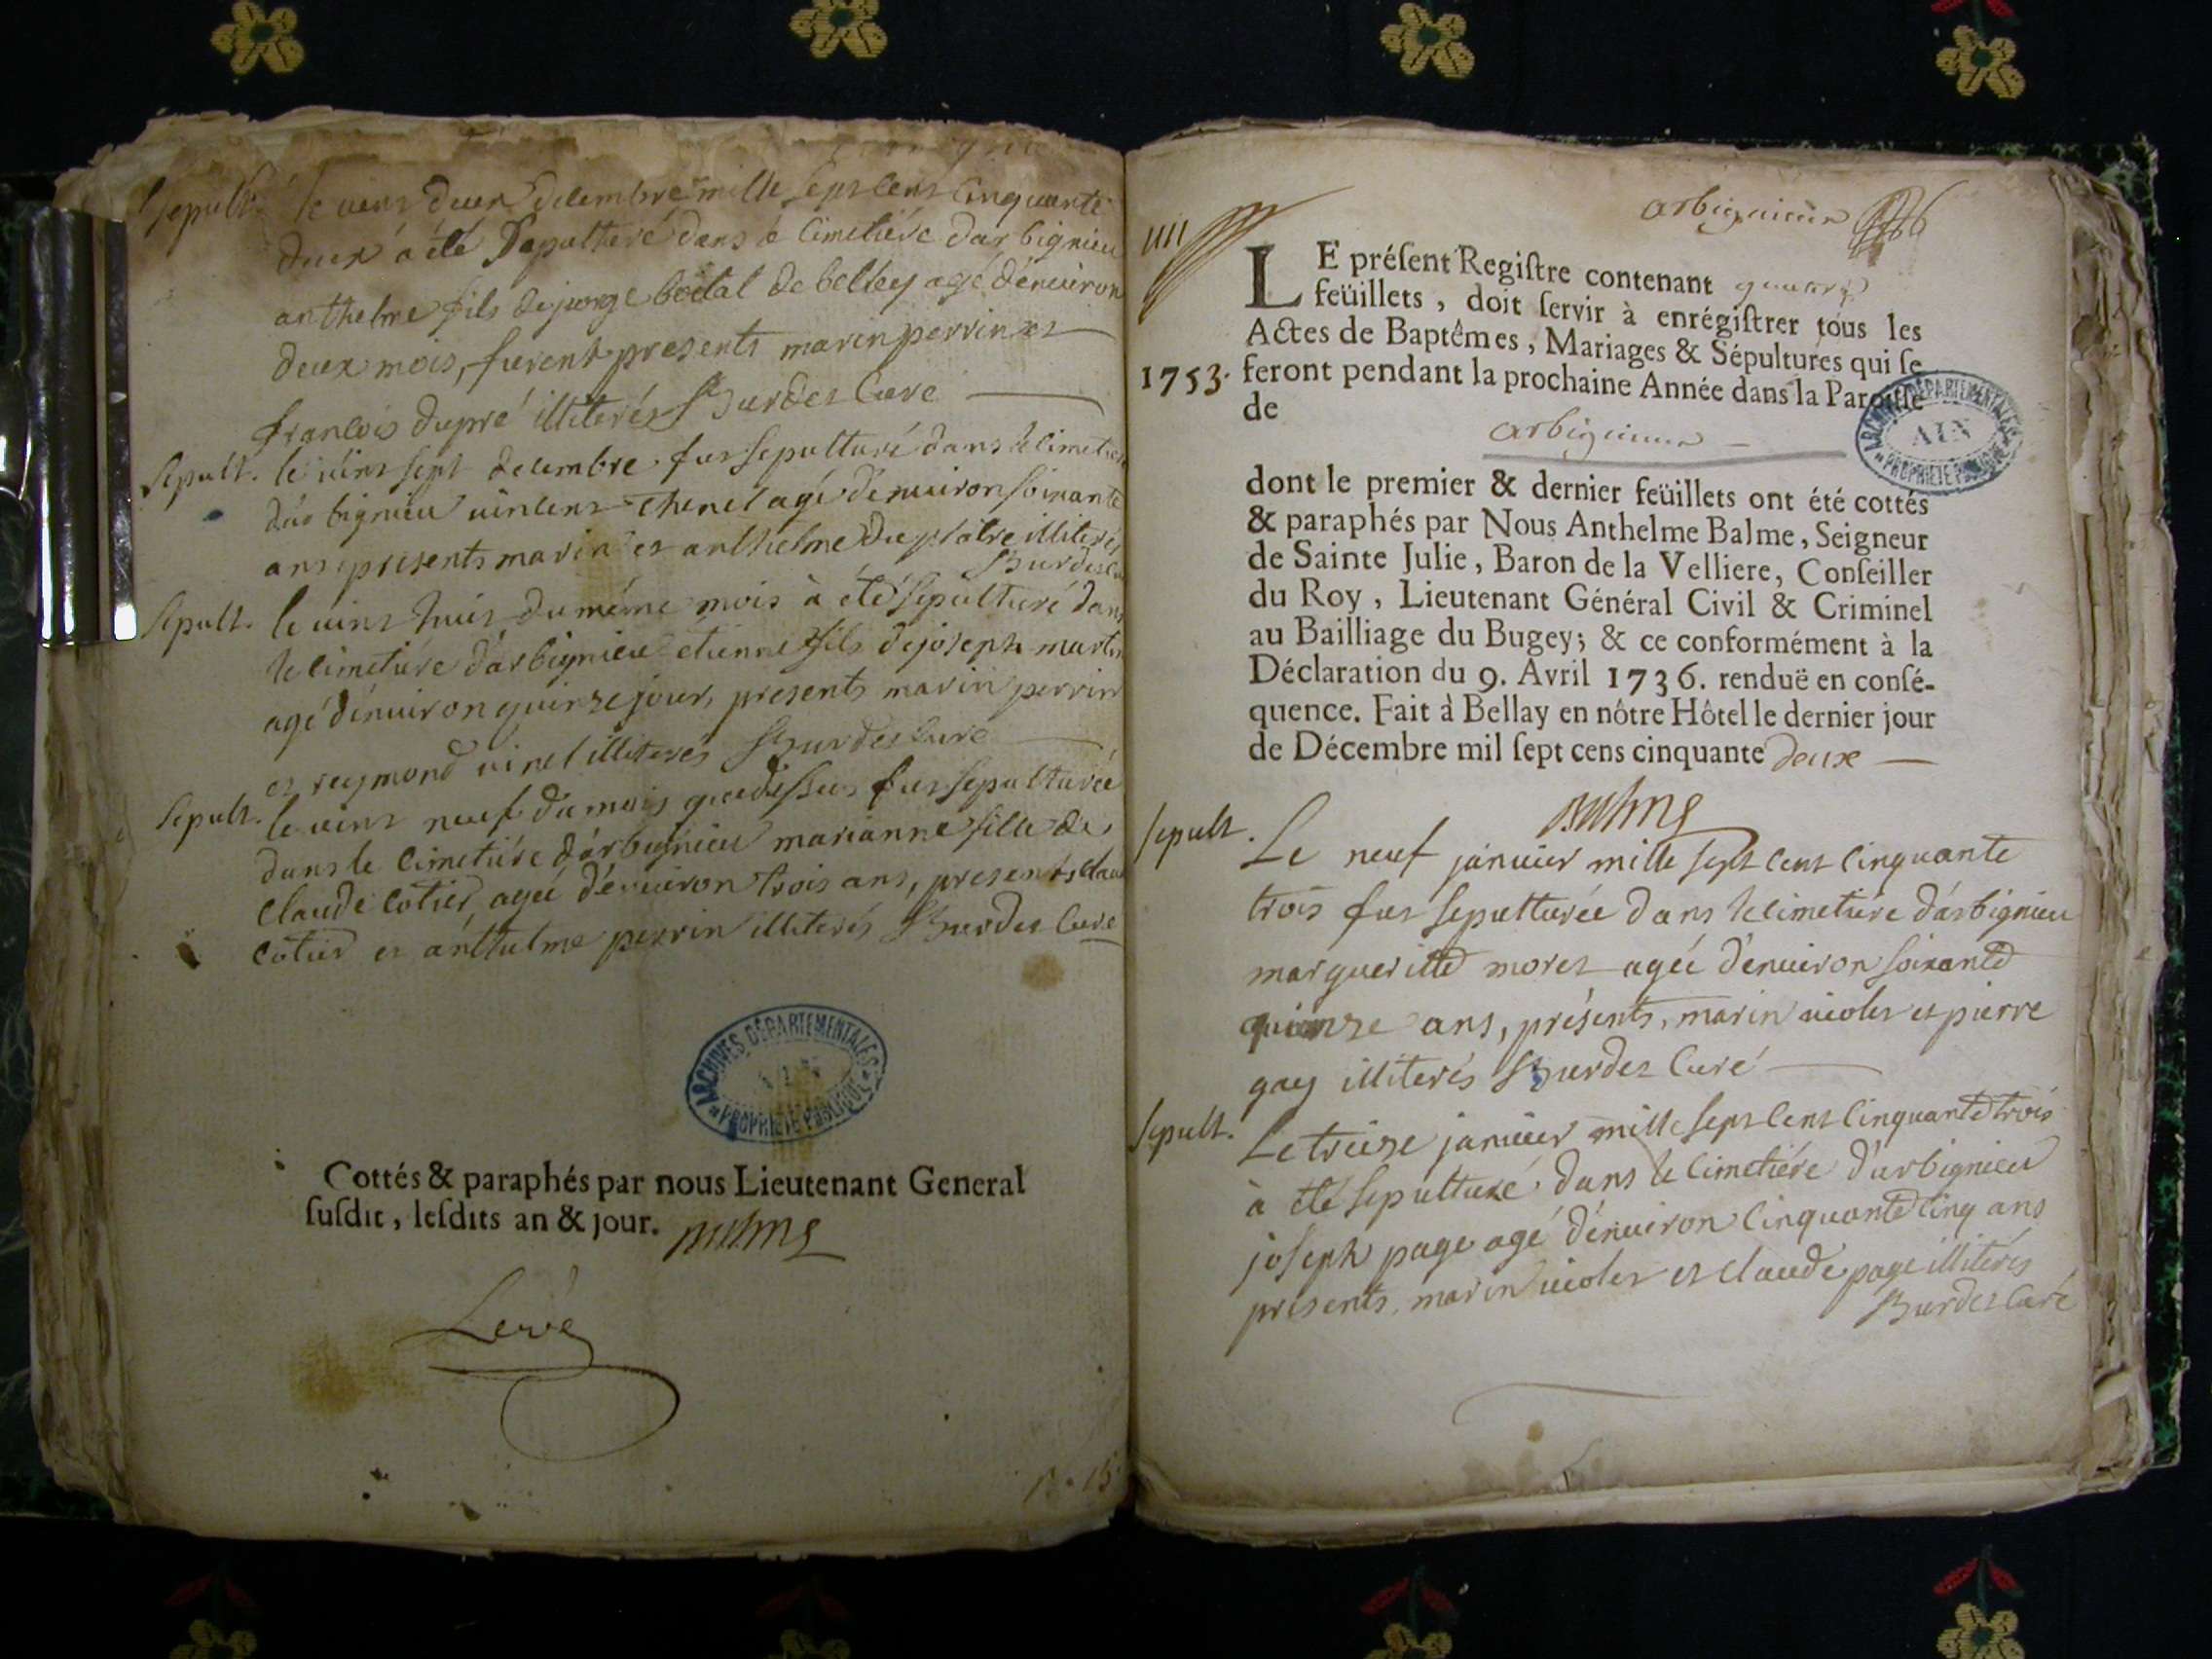 sepult. le vint deux decembre mille sept cent cinquante
deux a été Sepulturé dans le cimetiére d'arbignieu
anthelme fils de jorge boétal de belley agé dénuiron
deux mois, furent presents marin perrin et
francois dupré illiterés Burdet Curé
Sepult. le vint sept decembre fut sepulturé dans le cimetiere
d'arbignieu vincent chenel agé dénuiron soixante
ans presents marin et anthelme Duplatre illiterés
Burdet
Sepult. le vint huit du méme mois à été sepulturé dans
le cimetiére d'arbignieu etienne fils de joseph martin
agé dénuiron quinze jour, presents marin perrin
et reymond vinet illiterés Burdet Curé
Sepult. le vint neuf du mois que dessus fut sepulturée
dans le cimetiére d'arbignieu marianne fille de
claude cotier, ageé dénuiron trois ans, presents claude
cotier et anthelme perrin illiterés Burdet Curé
ARCHIVES DÉPARTEMENTALES
AIN
PROPRIÉTÉ PUBLIQUE
Cottés & paraphés par nous Lieutenant General
susdit, lesdits an & jour. Balme
Levé
arbignieu
LE présent Registre contenant quatre
feüillets, doit servir à enrégistrer tous les
Actes de Baptêmes, Mariages & Sépultures qui se
1753. feront pendant la prochaine Année dans la Paroisse
de
arbignieu
ARCHIVES DÉPARTEMENTALES
AIN
PROPRIÉTÉ PUBLIQUE
dont le premier & dernier feüillets ont été cottés
& paraphés par Nous Anthelme Balme, Seigneur
de Sainte Julie, Baron de la Velliere, Conseiller
du Roy, Lieutenant Général Civil & Criminel
au Bailliage du Bugey; & ce conformément à la
Déclaration du 9. Avril 1736. renduë en consé-
quence. Fait à Bellay en nôtre Hôtel le dernier jour
de Décembre mil sept cens cinquante deux
Balme
sepult. Le neuf januier mille sept cent cinquante
trois fut sepulturée dans le cimetiére d'arbignieu
margueritte moret ageé d'enuiron soixante
quinze ans, présents, marin violet et pierre
gay illiterés Burdet Curé
Sepult. Le treize januier mille sept cent cinquante trois
à été sepulturé dans le cimetiére d'arbignieu
joseph page agé d'énuiron cinquante cinq ans
présents, marin violet et claude page illiterés
Burdet Curé